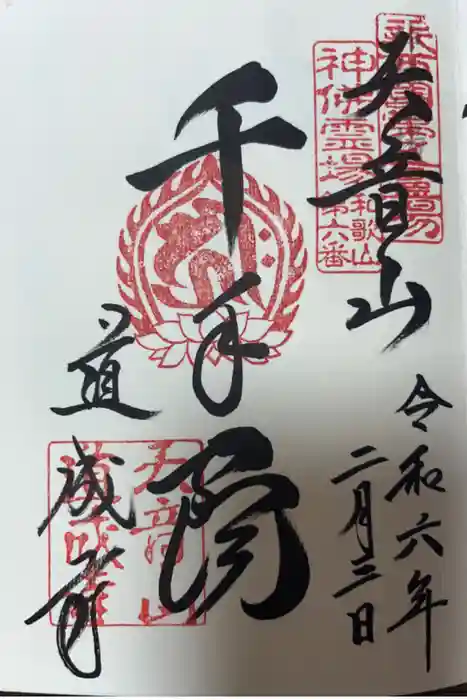 天音山
神佛霊場
和歌山
第六番
令和六年
二月三日
千手閣
道成寺
天音山
道成寺